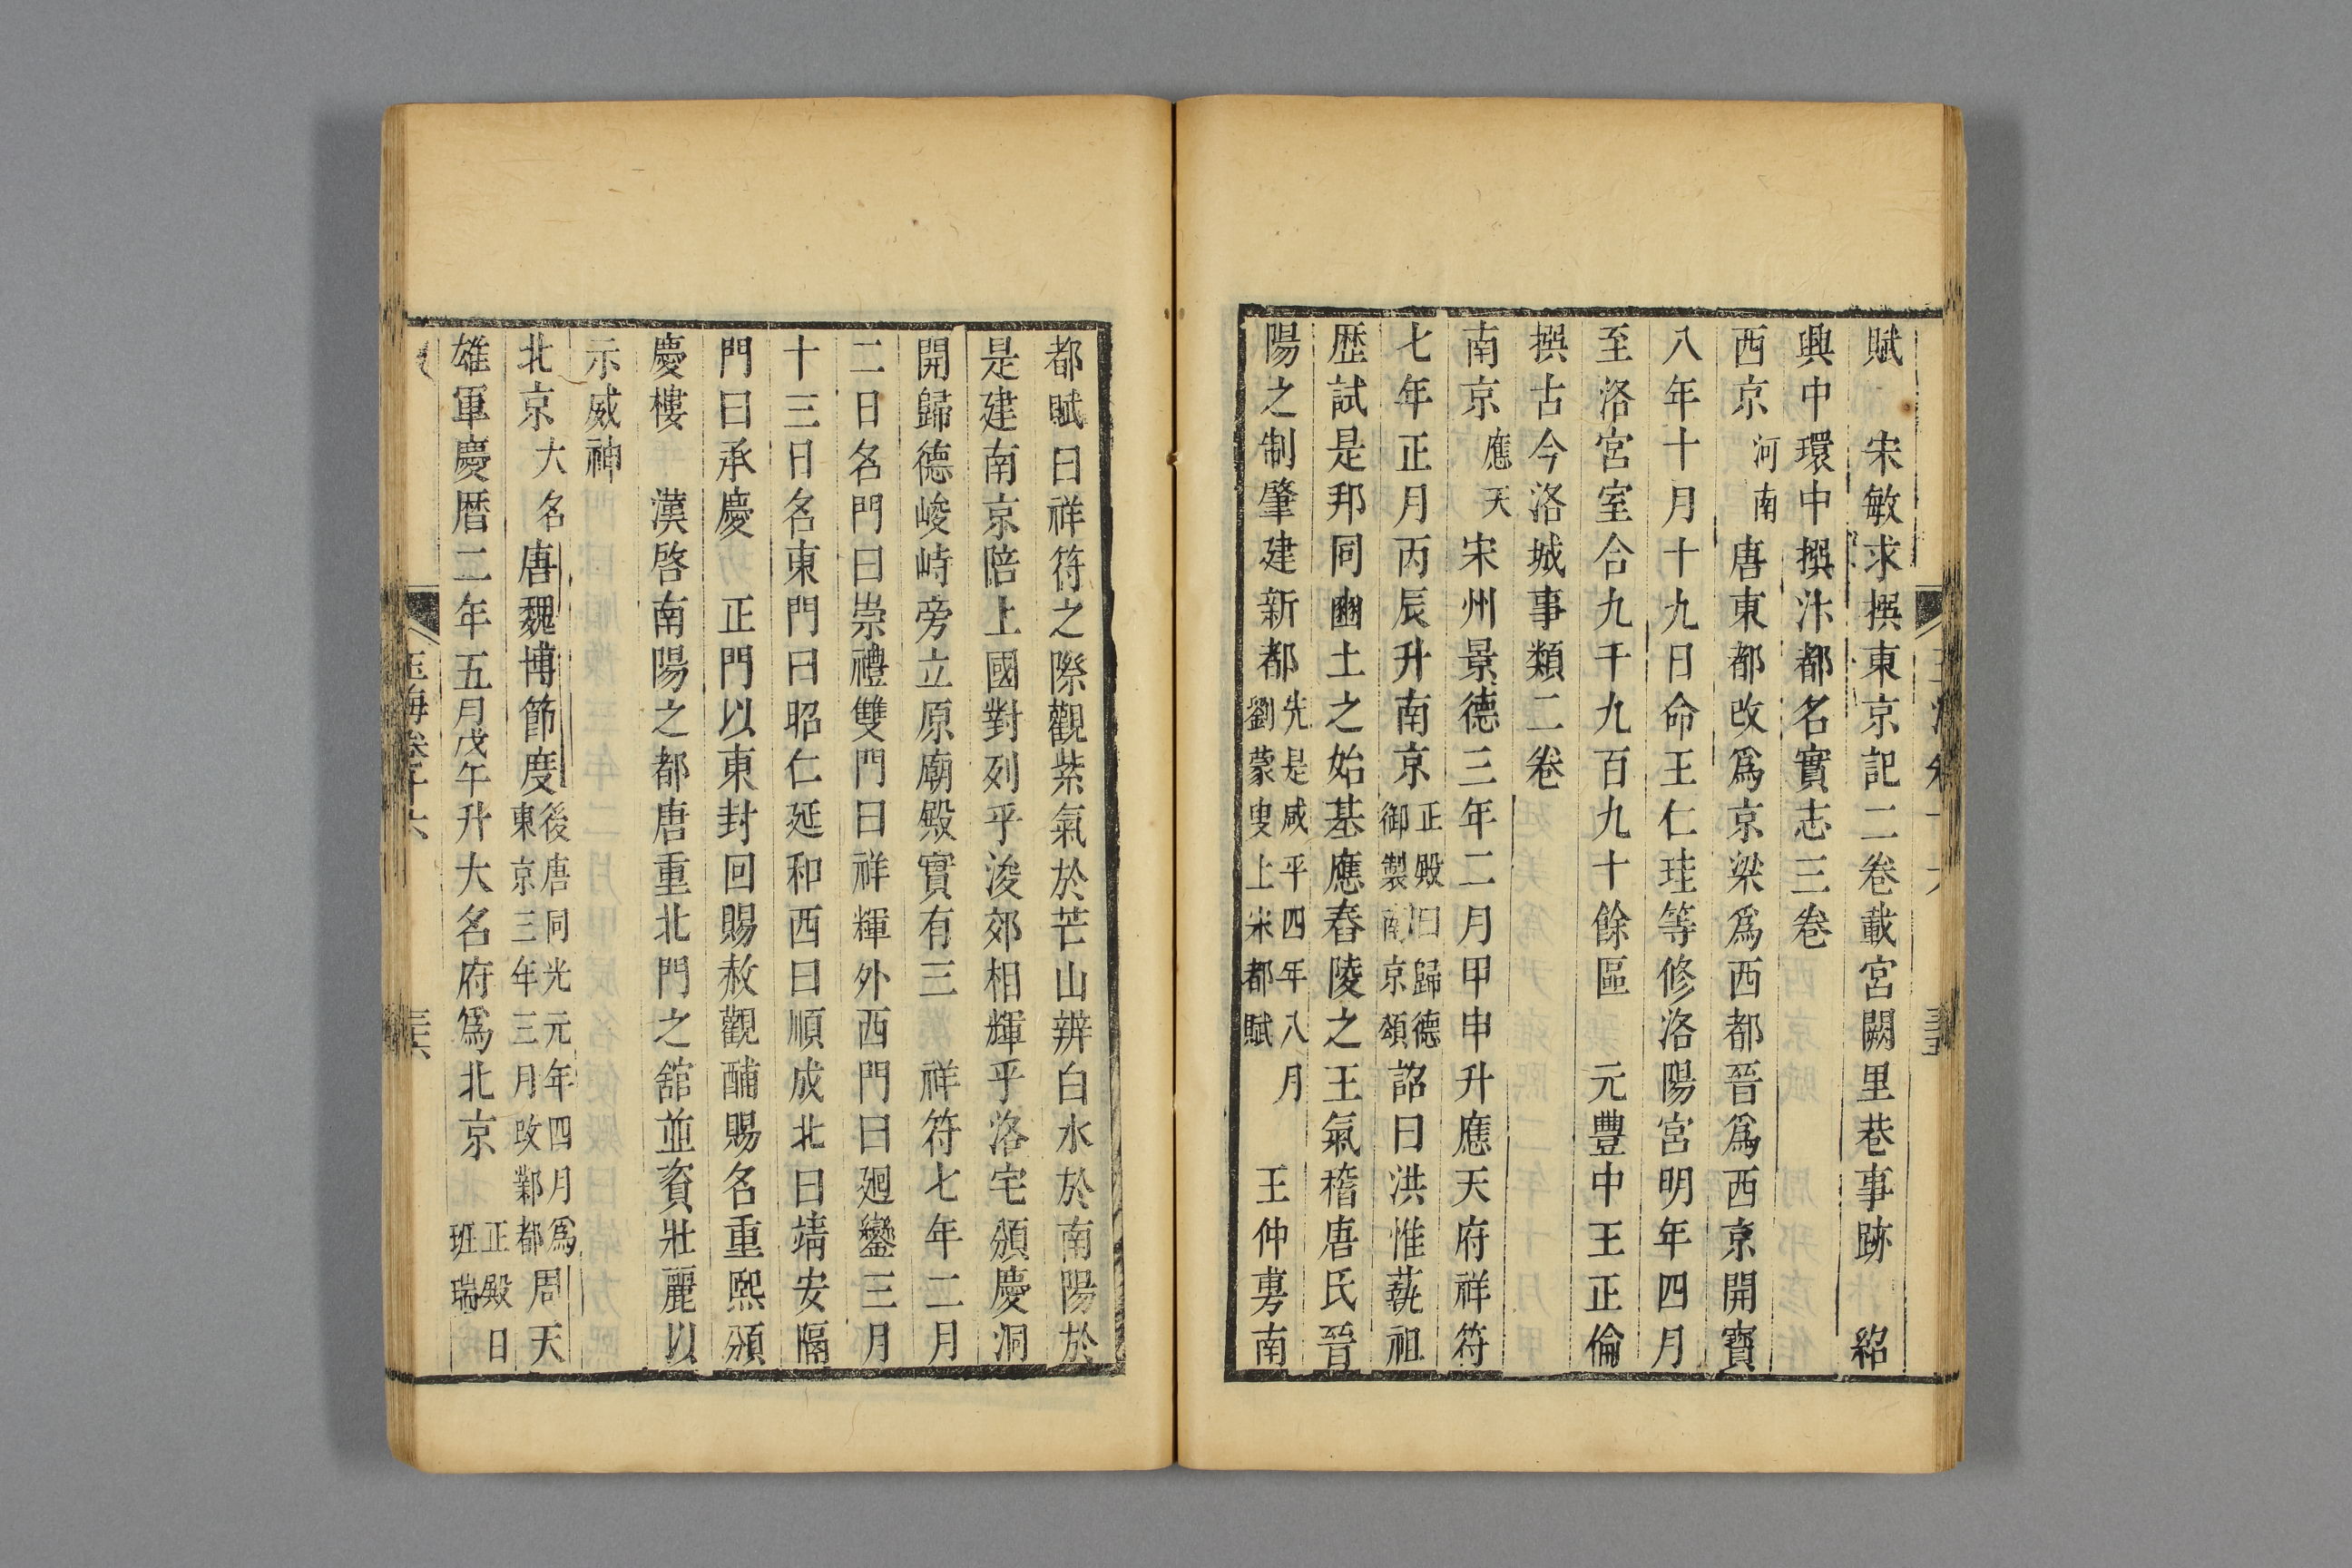 賦 宋敏求撰東京記二卷載宮闕里巷事跡 紹
興中環中撰汴都名實志三卷
西京河南唐東都改爲京梁爲西都晉爲西京開寶
八年十月十九日命王仁珪等修洛陽宮明年四月
至洛宮室合九千九百九十餘區 元豊中王正倫
撰古今洛城事類二卷
南京應天宋州景德三年二月甲申升應天府祥符
七年正月丙辰升南京正殿曰歸德御製南京頌詔曰洪惟藝祖
歷試是邦同豳土之始基應舂陵之王氣稽唐氏晉
陽之制肇建新都先是咸平四年八月劉蒙叟上宋都賦 王仲旉南
都賦曰祥符之際觀紫氣於芒山辨白水於南陽於
是建南京陪上國對列乎浚郊相輝乎洛宅頒慶洞
開歸德峻峙旁立原廟殿實有三 祥符七年二月
二日名門曰崇禮雙門曰祥輝外西門曰廻鑾三月
十三日名東門曰昭仁延和西曰順成北曰靖安隔
門曰承慶 正門以東封回賜赦觀酺賜名重熙頒
慶樓 漢啓南陽之都唐重北門之舘並資壯麗以
示威神
北京大名唐魏博節度後唐同光元年四月爲東京三年三月改鄴都周天
雄軍慶曆二年五月戊午升大名府爲北京正殿曰班瑞
玉海卷十六